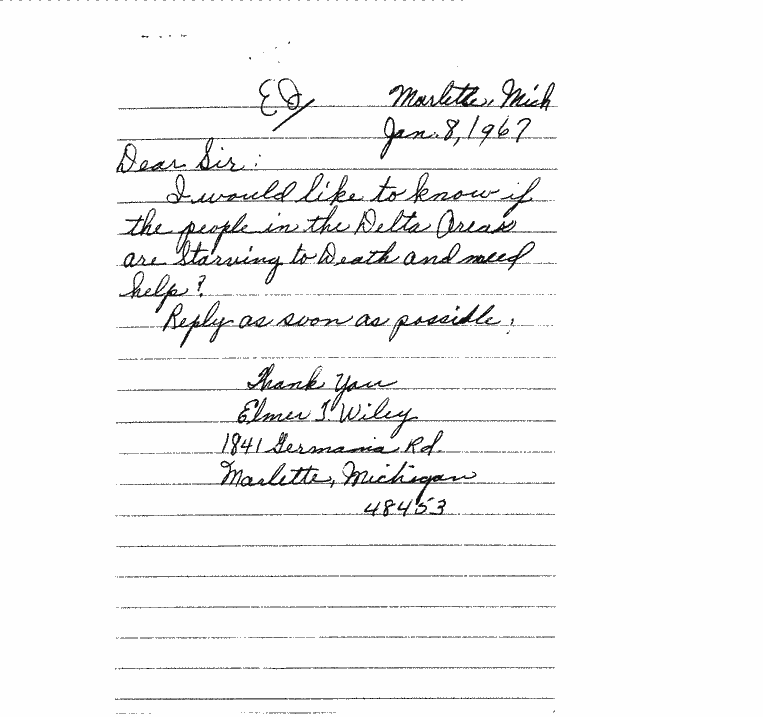 EJ/ Marlette, Mich
Jan. 8, 1967
Dear Sir:
I would like to know if
the people in the Delta Areas
are Starving to Death and need
help?
Reply as soon as possible.
Thank You
Elmer J Wiley
1841 Germania Rd.
Marlette, Michigan
48453